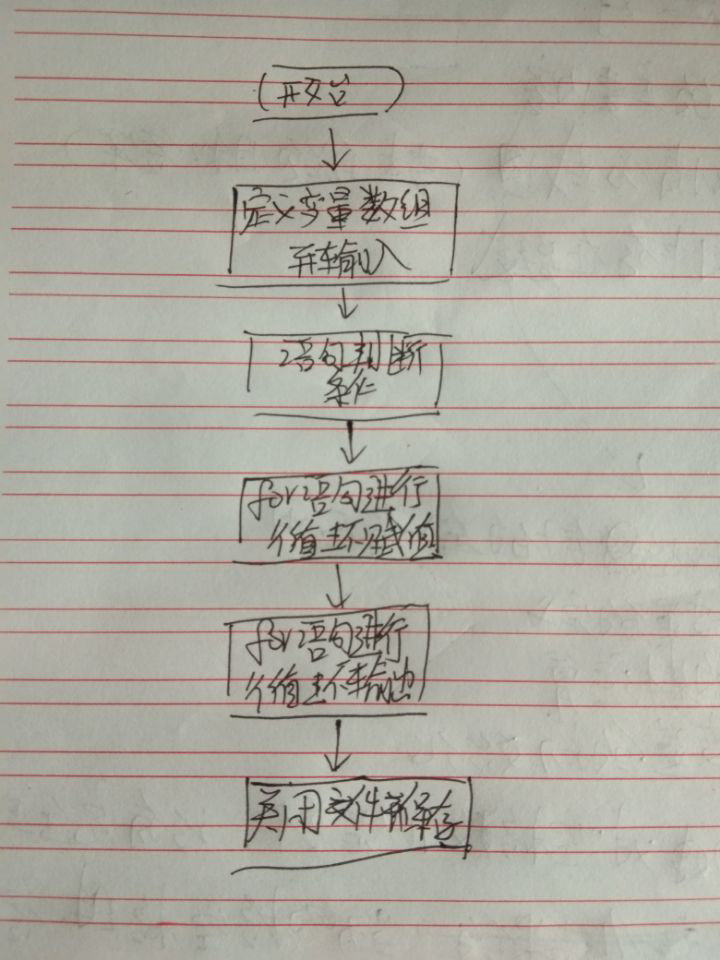 开始
定义变量数组
并输入
语句判断
条件
for语句进行
循环赋值
for语句进行
循环输出
关闭文件并保存